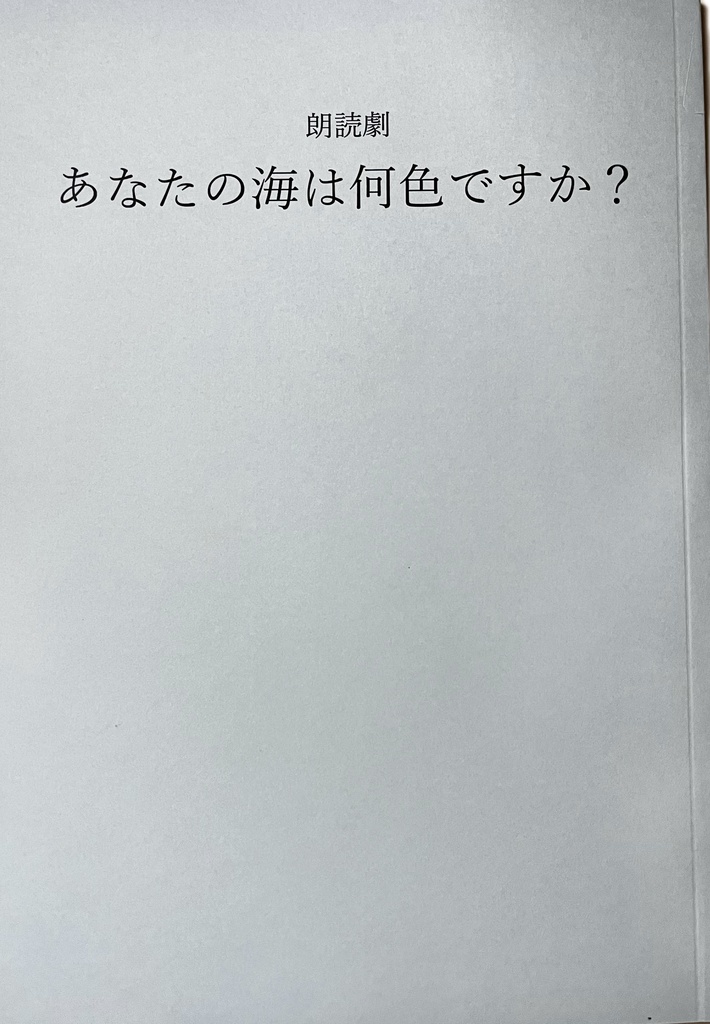 朗読劇
あなたの海は何色ですか？